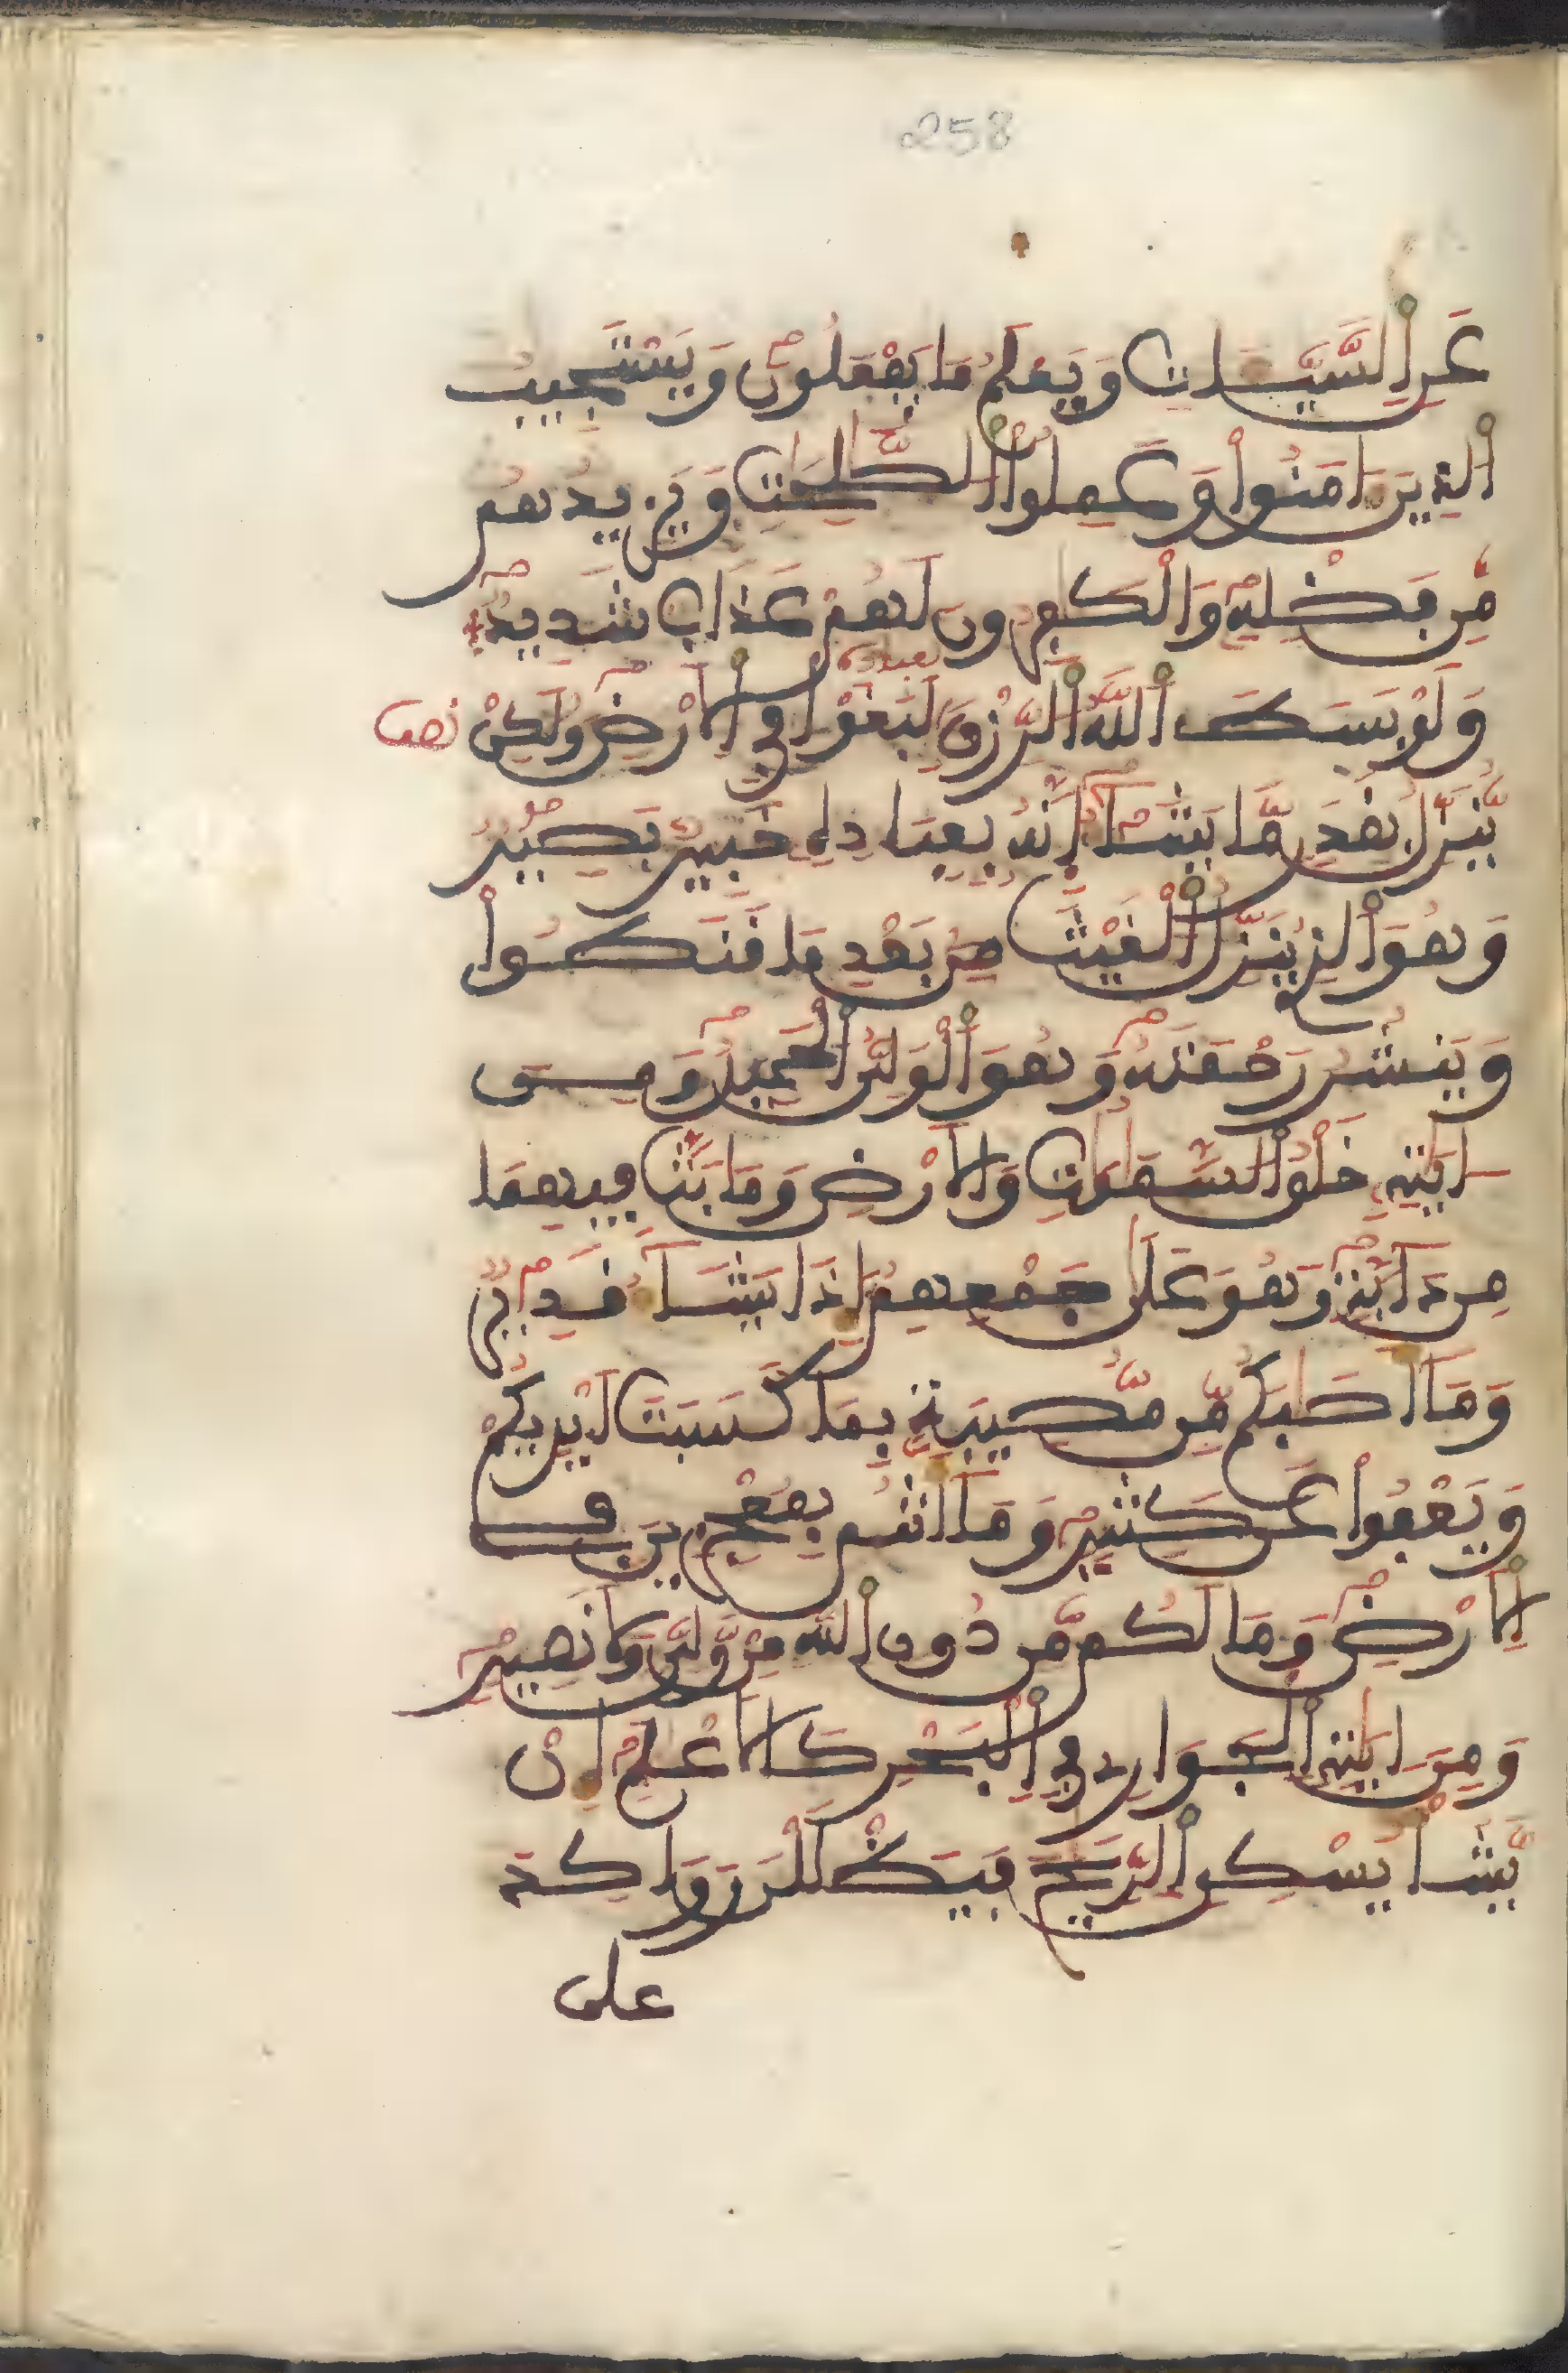 258
عَنِ اِ۬لسَّيِّـَٔاتِ وَيَعْلَمُ مَا يَفْعَلُونَ وَيَسْتَجِيبُ
اُ۬لذِينَ ءَامَنُواْ وَعَمِلُواْ اُ۬لصَّٰلِحَٰتِ وَيَزِيدُهُم
مِّن فَضْلِهِۦ وَالْكَٰفِرُونَ لَهُمْ عَذَابٞ شَدِيدٞ
وَلَوْ بَسَطَ اَ۬للَّهُ اُ۬لرِّزْقَ لِعِبَادِهِۦ لَبَغَوْاْ فِي اِ۬لَارْضِ وَلَٰكِنْ نصف
يُّنَزِّلُ بِقَدَرٖ مَّا يَشَآءُ اِنَّهُۥ بِعِبَادِهِۦ خَبِيرُۢ بَصِيرٞ
وَهُوَ اَ۬لذِے يُنَزِّلُ اُ۬لْغَيْثَ مِنۢ بَعْدِ مَا قَنَطُواْ
وَيَنشُرُ رَحْمَتَهُۥ وَهُوَ اَ۬لْوَلِيُّ اُ۬لْحَمِيدُ وَمِنَ
ـ ءَايَٰتِهِۦ خَلْقُ اُ۬لسَّمَٰوَٰتِ وَالَارْضِ وَمَا بَثَّ فِيهِمَا
مِن دَآبَّةٖ وَهُوَ عَلَىٰ جَمْعِهِمُۥٓ إِذَا يَشَآءُ قَدِيرٞ
وَمَآ أَصَٰبَكُم مِّن مُّصِيبَةِۢ بِمَا كَسَبَتَ اَيْدِيكُمْ
وَيَعْفُواْ عَن كَثِيرٖ وَمَآ أَنتُم بِمُعْجِزِينَ فِے
اِ۬لَارْضِ وَمَا لَكُم مِّن دُونِ اِ۬للَّهِ مِنْ وَّلِيّٖ وَلَا نَصِيرٖ
وَمِنَ اٰيَٰتِهِ اِ۬لْجَوَارِۦ فِي اِ۬لْبَحْرِ كَالَاعْلَٰمِ إِنْ
يَّشَأْ يُسْكِنِ اِ۬لرِّيَٰحَ فَيَظْلَلْنَ رَوَاكِدَ
على